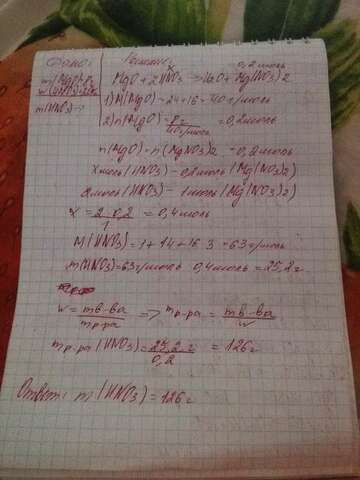 Дано: Решение:
m(MgO)=8г 0,2моль
w(HNO3)=20% MgO + 2HNO3 = H2O + Mg(NO3)2
m(HNO3)-? 1) M(MgO) = 24+16 = 40г/моль
2) n(MgO) = 8г/40г/моль = 0,2моль
n(MgO) = n(MgNO3)2 = 0,2моль
Xмоль (HNO3) - 0,2моль (Mg(NO3)2)
2моль (HNO3) - 1моль (Mg(NO3)2)
X = 2 · 0,2 / 1 = 0,4моль
M(HNO3) = 1+14+16·3 = 63г/моль
m(HNO3) = 63г/моль · 0,4моль = 25,2г
w = mв-ва / mр-ра => mр-ра = mв-ва / w
mр-ра (HNO3) = 25,2 г / 0,2 = 126г
Ответ: m(HNO3) = 126г